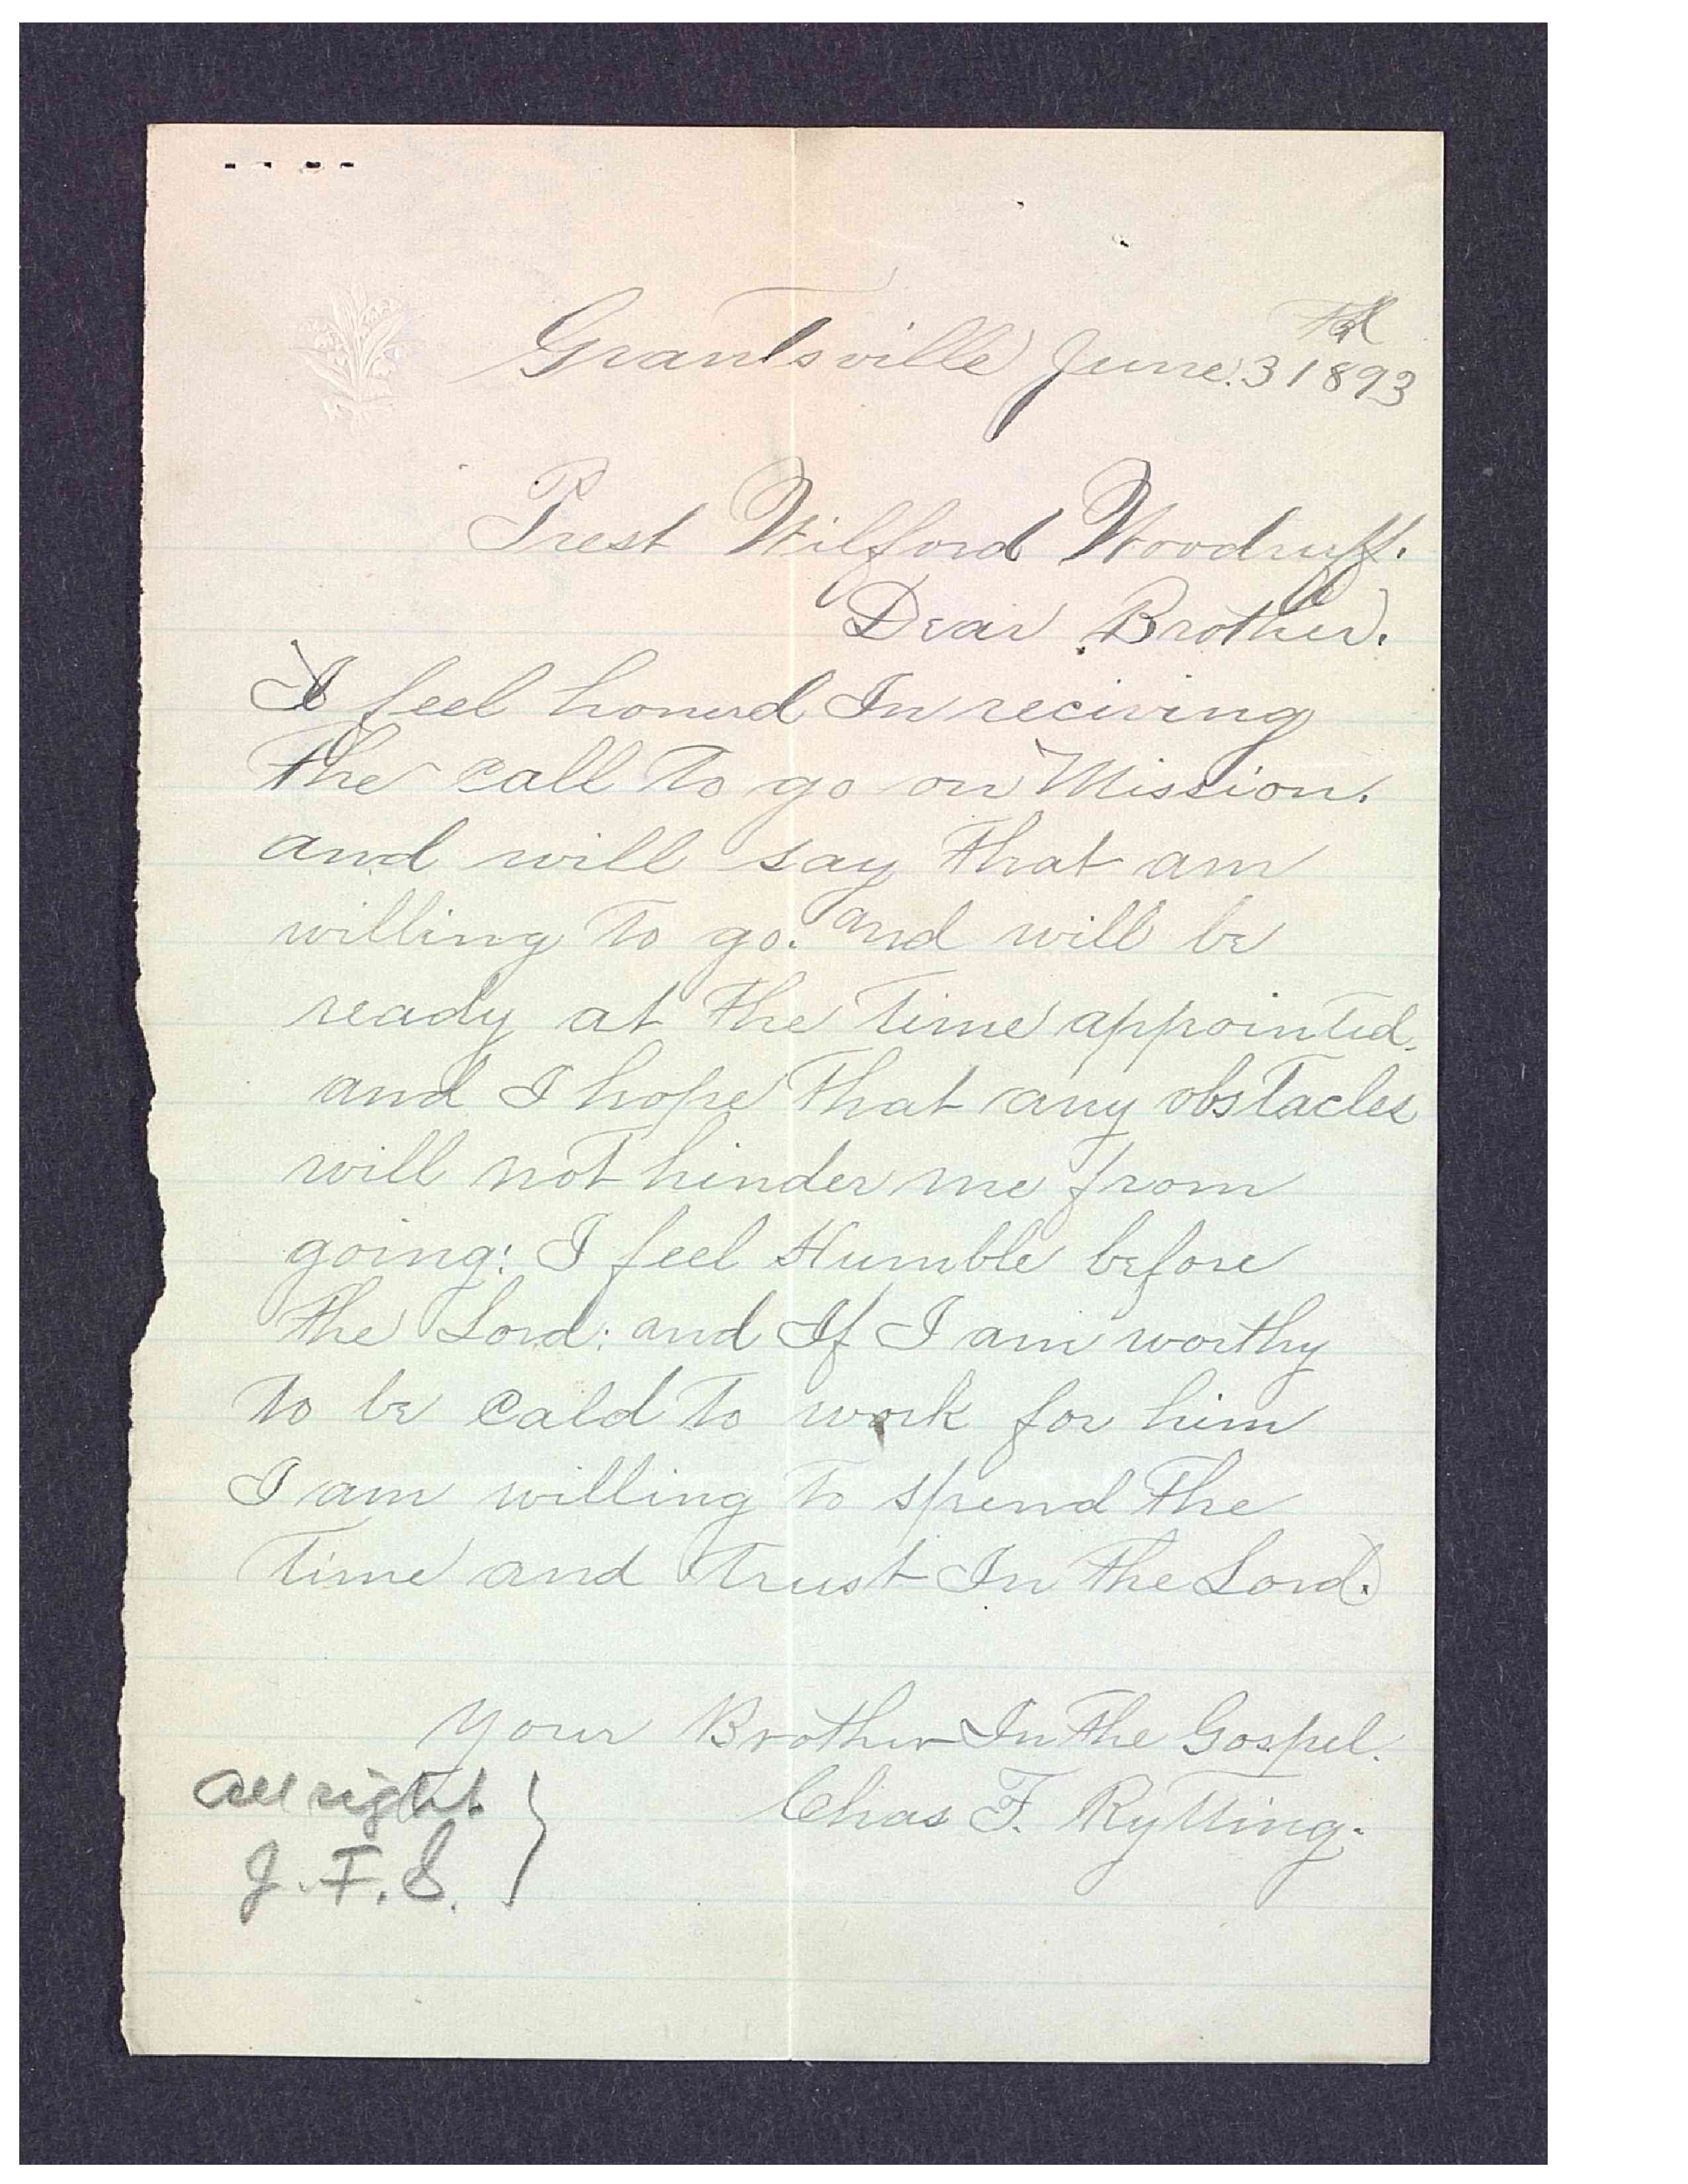 Grantsville June. 3th 1893
Prest Wilford Woodruff.
Dear Brother.
I feel honerd In reciving
the call to go on Mission.
and will say that am
willing to go. and will be
ready at the time appointed.
and I hope that any obstacles
will not hinder me from
going: I feel Humble before
the Lord: and If I am worthy
to be cald to work for him
I am willing to spend the
time and trust In the Lord.
Your Brother In the Gospel.
Chas F. Rytting.
all right
J. F. S.